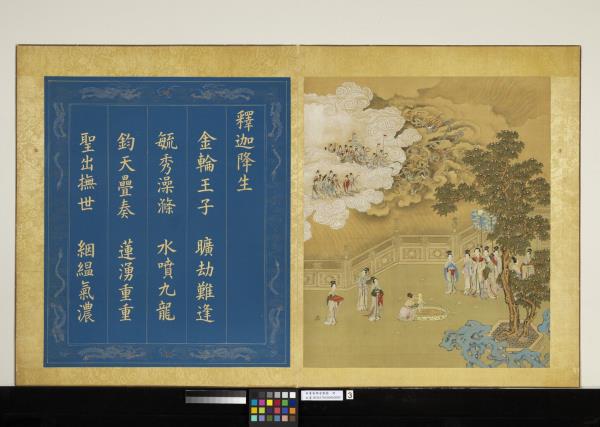 釋迦降生
金輪王子 曠劫難逢
毓秀澡滌 水噴九龍
鈞天疊奏 蓮湧重重
聖出撫世 絪縕氣濃
3